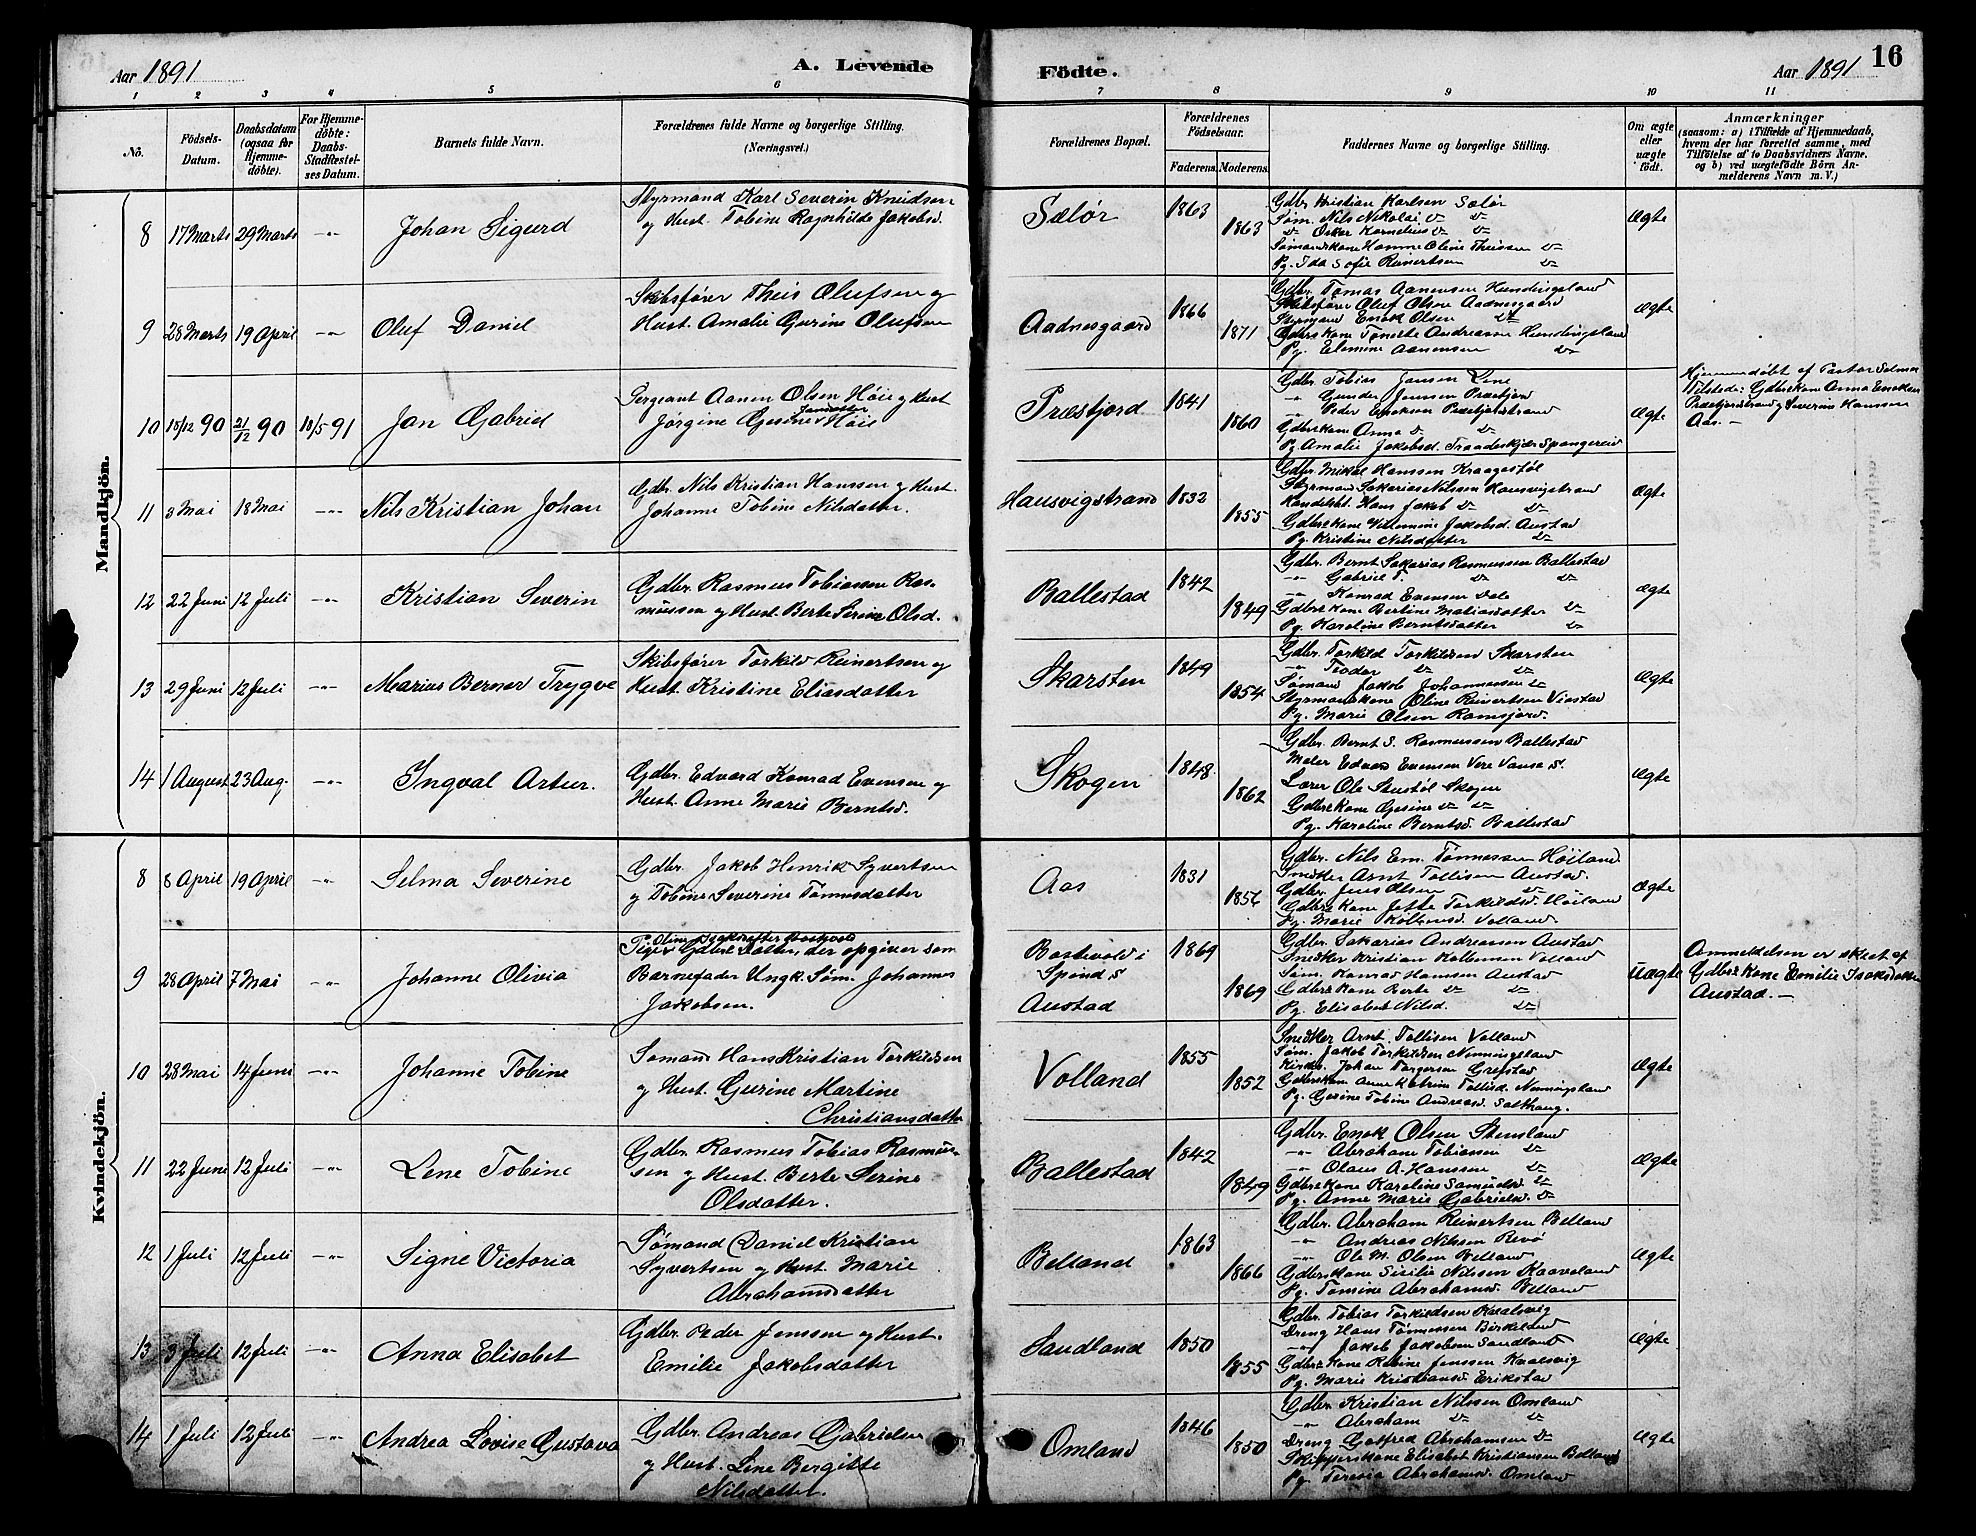 Aar 1891
A. Levende
Födte.
Aar 1891
16
1 2 3 4 5 6 7 8 9 10 11
No.
Födsels-Datum.
Daabsdatum (ogsaa for Hjemmedöbte).
For Hjemmedöbte: Daabs-Stadfæstelses Datum.
Barnets fulde Navn.
Forældrenes fulde Navne og borgerlige Stilling.
(Næringsvei.)
Forældrenes Bopæl.
Forældrenes Födselsaar.
Faderens. Moderens.
Faddernes Navne og borgerlige Stilling.
Om ægte eller uægte födt.
Anmærkninger
(saasom: a) i Tilfælde af Hjemmedaab, hvem der har forrettet samme, med Tilföielse af to Daabsvidners Navne, og b) ved uægtefödte Börn Anmelderens Navn m. V.)
Mandkjön.
8 17 Marts 29 Marts -"- Johan Sigurd
Styrmand Karl Severin Knudsen
og Hust. Tobine Ragnhilde Jakobsd.
Sælør 1863 1863
Gdbr. Kristian Karlsen Sælør
Søm. Nils Nikolai do do
do Oskar Kornelius do do
Sømandskone Hanne Oline Theissen do
Pg. Ida Sofie Reinertsen do
Ægte
9 28 Marts 19 April -"- Oluf Daniel
Skibsfører Theis Olufsen og
Hust. Amalie Gurine Olufsen
Aadnesgaard 1866 1871
Gdbr. Tomas Aanensen Hundingsland
Skibsfører Oluf Olsen Aadnesgaard
Styrmand Enok Olsen do
Gdbrskone Tonette Andreasen Hundingsland
Pg. Elemine Aanensen do
Ægte
10 10/12 90 21/12 90 10/5 91 Jan Gabriel
Sergeant Aanen Olsen Høie og Hust
Jørgine Gesine Jansdatter Høie
Præstfjord 1841 1860
Gdbr. Tobias Jansen Lene
-"- Gunder Jensen Præstfjord
-"- Peder Enoksen Præstfjordstrand
Gdbrskone Anna do do
Pg. Amalie Jakobsd. Traaneskjær Spangereid
Ægte
Hjemmedøbt af Pastor Selmer
Tilstede: Gdbrskone Anna Enoksen
Præstfjordstrand og Severin Hanssen
Aas. -
11 3 Mai 18 Mai -"- Nils Kristian Johan
Gdbr. Nils Kristian Hanssen og Hust.
Johanne Tobine Nilsdatter.
Hausvigstrand 1832 1855
Gdbr. Mikal Hanssen Kraagestøl
Styrmand Sakarias Nilssen Hausvigstrand
Handelsbt. Hans Jakob do do
Gdbrskone Vilemine Jakobsd. Austad
Pg. Kristine Nilsdatter do
Ægte
12 22 Juni 12 Juli -"- Kristian Severin
Gdbr. Rasmus Tobiassen Ras-
mussen og Hust. Berte Serine Olsd.
Ballestad 1842 1849
Gdbr. Bernt Sakarias Rasmussen Ballestad
-"- Gabriel T. do do
-"- Konrad Evensen Dale
Gdbrskone Bertine Matiasdatter do
Pg. Karoline Berntsdatter do
Ægte
13 29 Juni 12 Juli -"- Marius Berner Trygve
Skibsfører Torkild Reinertsen og
Hust. Kristine Eliasdatter
Skarsten 1849 1854
Gdbr. Torkild Torkildsen Skarsten
-"- Teodor do do
Sømand Jakob Johannessen do
Styrmandskone Oline Reinertsen Viestad
Pg. Marie Olsen Ramsfjord.
Ægte
14 1 August 23 Aug. -"- Ingval Artur.
Gdbr. Edvard Konrad Evensen og
Hust. Anne Marie Berntsd.
Skogen 1848 1862
Gdbr. Bernt S. Rasmussen Ballestad
Maler Edvard Evensen Vere Vanse S.
Lærer Ole Stustøl Skogen
Gdbrskone Gesine do do
Pg. Karoline Berntsd. Ballestad
Ægte
Kvindekjön.
8 8 April 19 April -"- Selma Severine
Gdbr. Jakob Henrik Syvertsen
og Tobine Severine Tønnesdatter
Aas 1831 1856
Gdbr. Nils Em. Tønnessen Høiland.
Snedker Arnt Tollisen Austad.
Gdbr. Jens Olsen do
Gdbrskone Jette Torkildsd. Høiland
Pg. Marie Kolbensd. Volland.
Ægte
9 28 April 7 Mai -"- Johanne Olivia
Pige Oline Isaksdatter Bostvold
Gdbrs Datter, der opgiver som
Barnefader Ungk. Søm. Johannes
Jakobsen.
Bostvold i
Spind S
Austad
1869 1869
Gdbr. Sakarias Andreassen Austad
Snedker Kristian Kolbensen Volland
Søm. Konrad Hanssen Austad
Gdbrskone Berte do do
Pg. Elisabet Nilsd. do
Uægte
Anmeldelsen er skeet af
Gdbrskone Emilie Isaksdatter
Austad. -
10 28 Mai 14 Juni -"- Johanne Tobine
Sømand Hans Kristian Torkildsen
og Hust. Gurine Martine
Christiansdatter
Volland 1855 1852
Snedker Arnt. Tollisen Volland
Søm. Jakob Torkildsen Nenningsland
Kirkes. Johan Torgersen Grostad
Gdbrskone Anne Katrine Tollisd. Nenningsland
Pg. Gesine Tobine Andreasd. Salthaug.
Ægte
11 22 Juni 12 Juli -"- Lene Tobine
Gdbr. Rasmus Tobias Rasmus-
sen og Hust. Berte Serine
Olsdatter.
Ballestad 1842 1849
Gdbr. Enok Olsen Stensland
-"- Abraham Tobiassen do
-"- Olaus A. Hanssen do
Gdbrskone Karoline Samuelsd. do
Pg. Anne Marie Gabrielsd. do
Ægte
12 1 Juli 12 Juli -"- Signe Victoria
Sømand Daniel Kristian
Syvertsen og Hust. Marie
Abrahamsdatter
Belland 1863 1866
Gdbr. Abraham Reinertsen Belland
-"- Andreas Nilssen Revø
-"- Ole M. Olsen Belland
Gdbrskone Sisilie Nilssen Kaaveland
Pg. Tomine Abrahamsd. Belland
Ægte
13 3 Juli 12 Juli -"- Anna Elisabet
Gdbr. Peder Jenssen og Hust.
Emilie Jakobsdatter
Sandland 1850 1855
Gdbr. Tobias Torkildsen Kvalsvig
Dreng Hans Tønnessen Birkeland
-"- Jakob Jakobsen Sandland
Gdbrskone Rebine Jenssen Kvalsvig
Pg. Marie Kristiansd. Erikstad
Ægte
14 1 Juli 12 Juli -"- Andrea Lovise Gustava
Gdbr. Andreas Gabrielsen
og Hust. Lene Bergitte
Nilsdatter.
Omland 1846 1850
Gdbr. Kristian Nilssen Omland
-"- Abraham do do
Dreng Gotfred Abrahamsen do
Skipperskone Elisabet Kristiansen Belland
Pg. Teresia Abrahamsd. Omland
Ægte